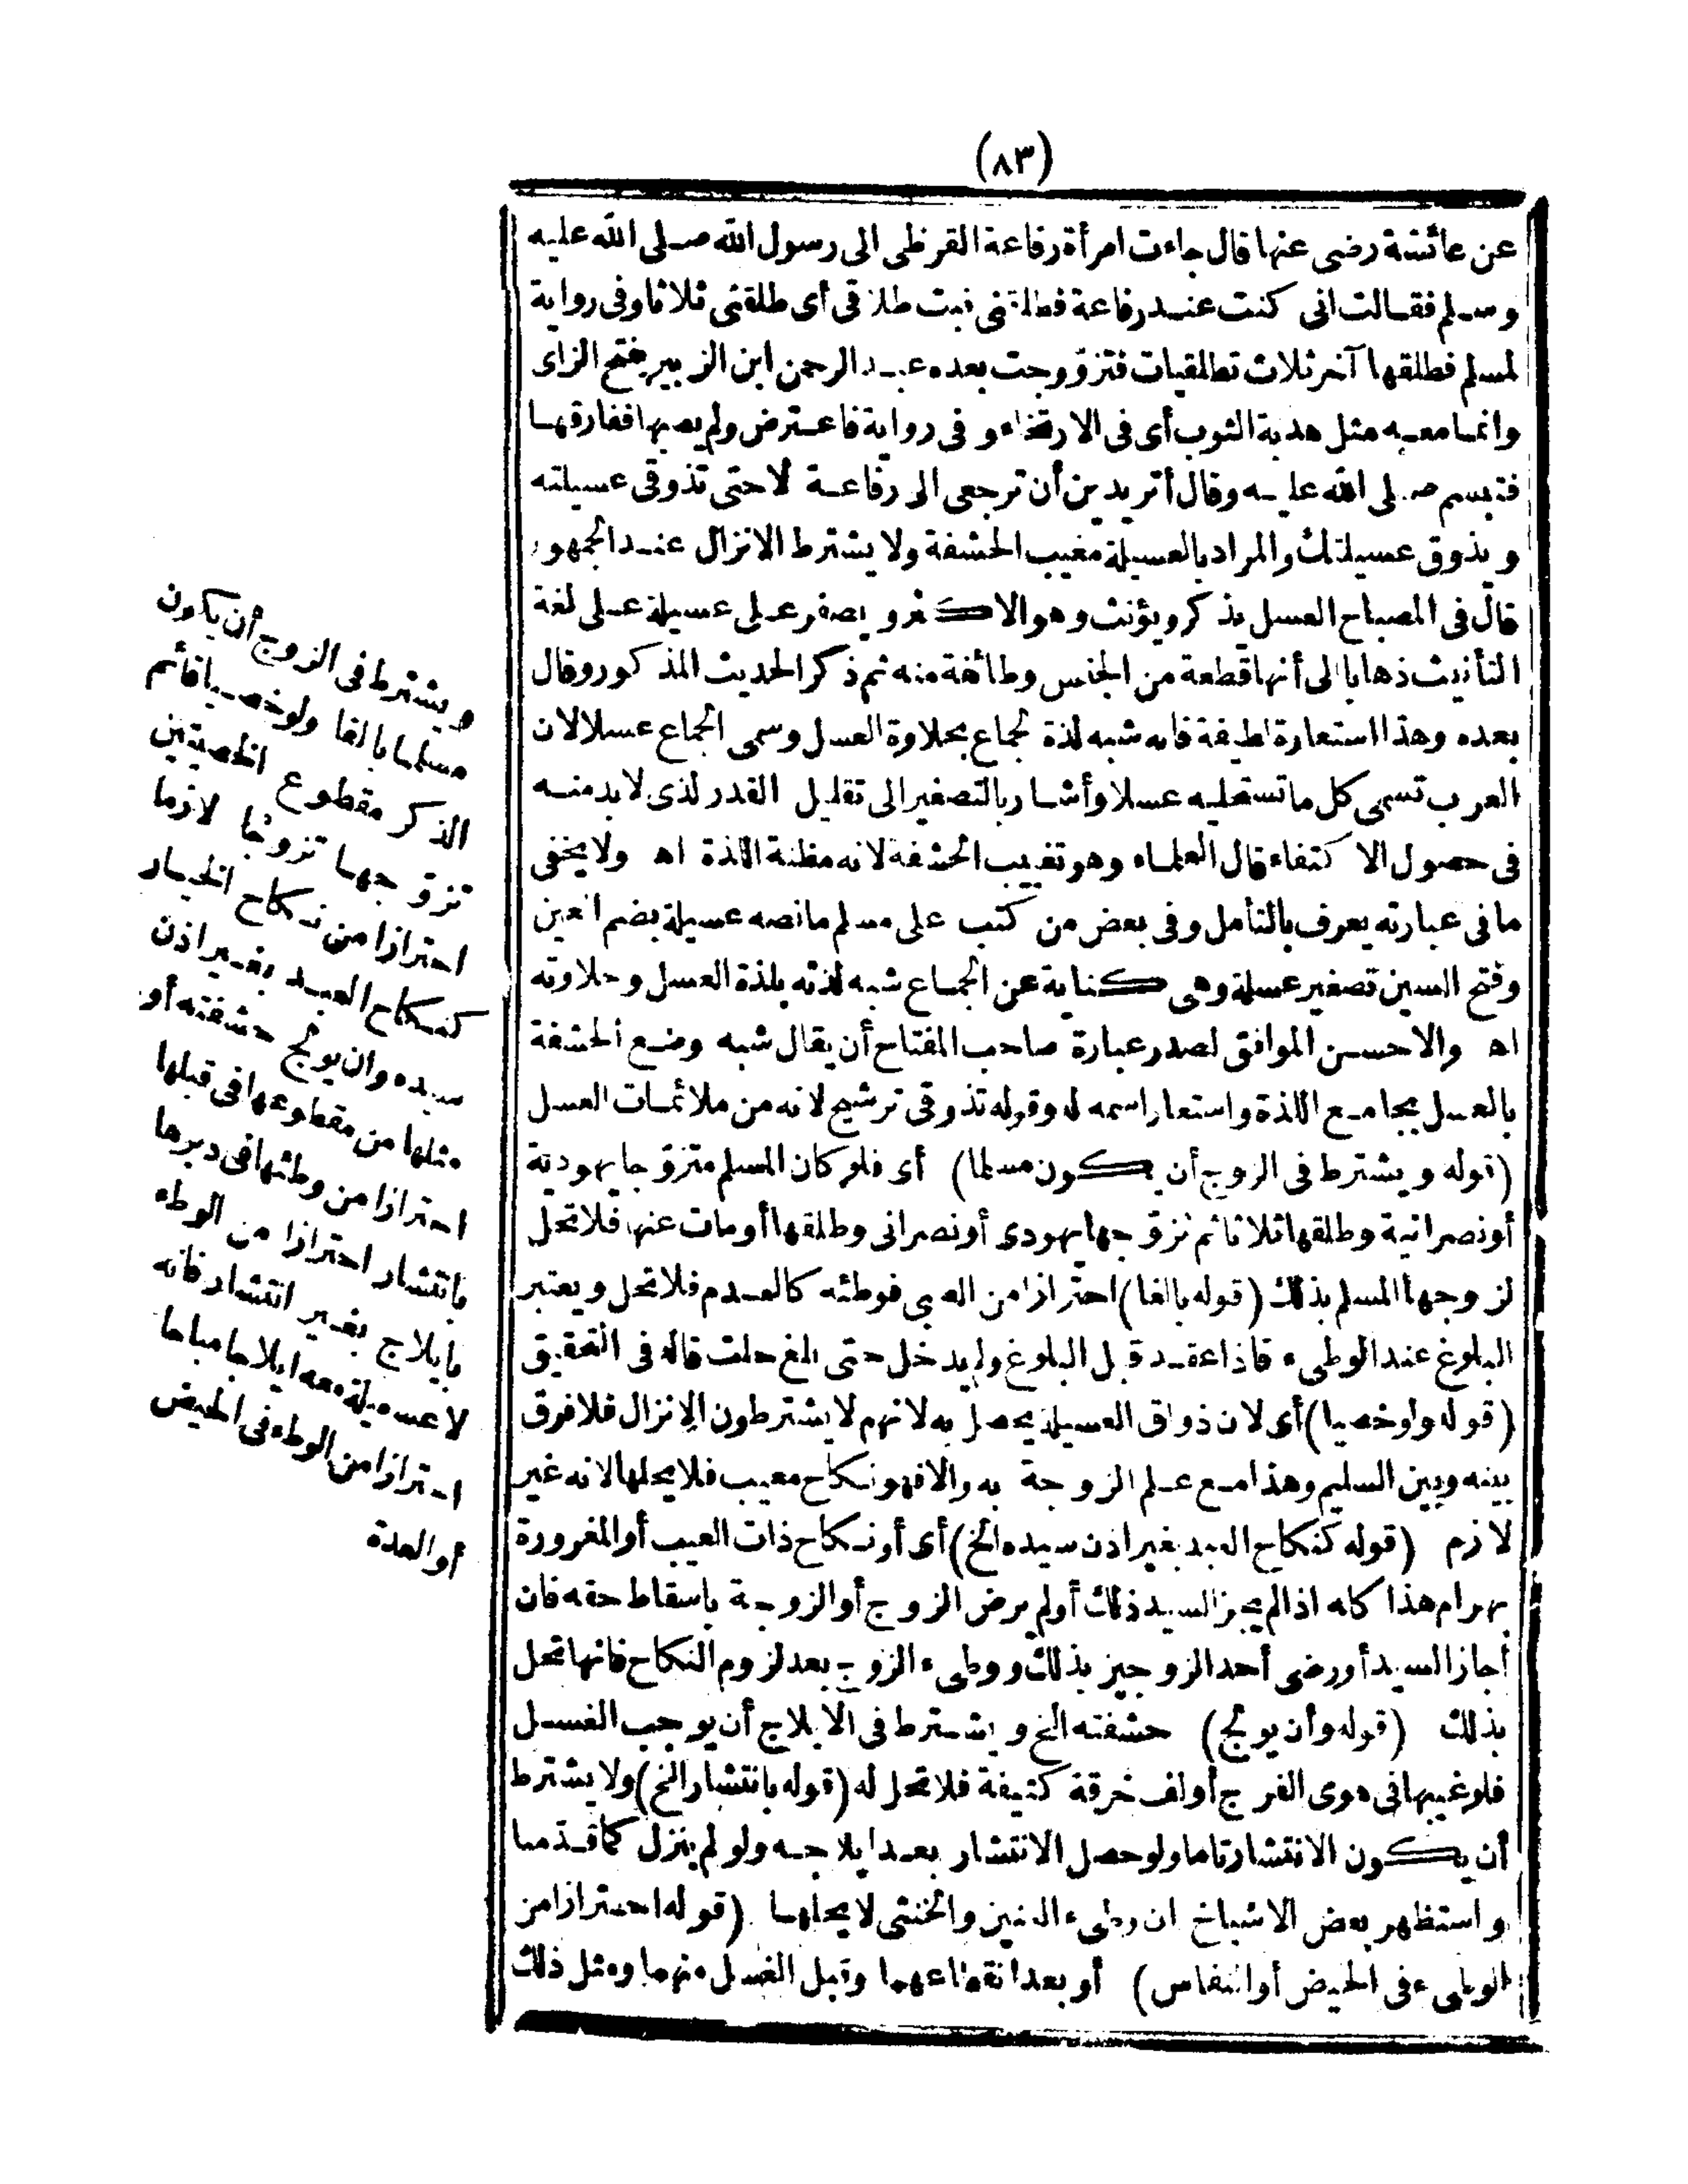 (٨٣)
عن عائشة رضى عنها قال جاءت امرأة رفاعة القرظى الى رسول الله صلى الله عليه
وسلم فقالت انى كنت عند رفاعة فطلقنى فبت طلاقى أى طلقنى ثلاثا وفى رواية
لمسلم فطلقها آخر ثلاث تطلقيات فتزوّجت بعده عبد الرحمن ابن الزبير بفتح الزاى
وانما معه مثل هدبة الثوب أى فى الارتخاء وفى رواية فاعترض ولم يصبها ففارقها
فتبسم صلى الله عليه وقال أتريدين أن ترجعى الى رفاعة لا حتى تذوقى عسيلته
ويذوق عسيلتك والمراد بالعسيلة مغيب الحشفة ولا يشترط الانزال عند الجمهور
قال فى المصباح العسل يذكر ويؤنث وهو الاكثر ويصغر على عسيلة على لغة
التأنيث ذهابا الى أنها قطعة من الجنس وطائفة منه ثم ذكر الحديث المذكور وقال
بعده وهذا استعارة لطيفة فانه شبه لذة الجماع بحلاوة العسل وسمى الجماع عسلا لان
العرب تسمى كل ما تستحليه عسلا وأشار بالتصغير الى تقليل القدر لذى لابد منه
فى حصول الاكتفاء قال العلماء وهو تغييب الحشفة لانه مظنة اللذة اه ولا يخفى
ما فى عبارته يعرف بالتأمل وفى بعض من كتب على مسلم ما نصه عسيلة بضم العين
وفتح السين تصغير عسلة وهى كناية عن الجماع شبه لذته بلذة العسل وحلاوته
اه والاحسن الموافق لصدر عبارة صاحب المفتاح أن يقال شبه وضع الحشفة
بالعسل بجامع اللذة واستعار اسمه له وقوله تذوقى ترشيح لانه من ملائمات العسل
(قوله ويشترط فى الزوج أن يكون مسلما) أى فلو كان المسلم متزوجا يهودية
أو نصرانية وطلقها ثلاثا ثم تزوّجها يهودى أو نصرانى وطلقها أو مات عنها فلا تحل
لزوجها المسلم بذلك (قوله بالغا) احترازا من الصبى فوطئه كالعدم فلا تحل ويعتبر
البلوغ عند الوطىء فاذا عقد قبل البلوغ ولم يدخل حتى بلغ حلت قاله فى التحقيق
(قوله ولو خصيا) أى لان ذواق العسيلة يحصل به لانهم لا يشترطون الانزال فلا فرق
بينه وبين السليم وهذا مع علم الزوجة به والا فهو نكاح معيب فلا يحلها لانه غير
لازم (قوله كنكاح العبد بغير اذن سيده الخ) أى أو نكاح ذات العيب أو المغرورة
بهرام هذا كله اذا لم يجز السيد ذلك أو لم يرض الزوج أو الزوجة باسقاط حقه فان
أجاز السيد أو رضى أحد الزوجين بذلك ووطىء الزوج بعد لزوم النكاح فانها تحل
بذلك (قوله وأن يولج) حشفته الخ ويشترط فى الايلاج أن يوجب الغسل
فلو غيبها فى هوى الفرج أو لف خرقة كثيفة فلا تحل له (قوله بانتشار الخ) ولا يشترط
أن يكون الانتشار تاما ولو حصل الانتشار بعد ايلاجه ولو لم ينزل كما قدّمنا
واستظهر بعض الاشياخ ان وطىء والخنثى لا يحلها (قوله احترازا من
الوطىء فى الحيض أو النفاس) أو بعد انقطاعهما وقبل الغسل منهما ومثل ذلك
ويشترط فى الزوج أن يكون
مسلما بالغا ولو خصيا قائم
الذكر مقطوع الخصيتين
تزوّجها تزوجا لازما
احترازا من نكاح الخيار
كنكاح العبد بغير اذن
سيده وان يولج حشفته أو
مثلها من مقطوعها فى قبلها
احترازا من وطئها فى دبرها
بانتشار احترازا من الوطء
بايلاج بغير انتشار فانه
لا عسيلة معه ايلاجا مباحا
احترازا من الوطء فى الحيض
أو العدة